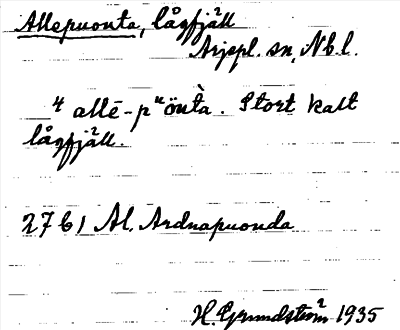 Allepuonta, lågfjäll
Arjepl. sn, Nb. l.
allē-pᵘöntà. Stort kalt
lågfjäll.
27 61 Al. Ardnapuonda
H. Grundström 1935